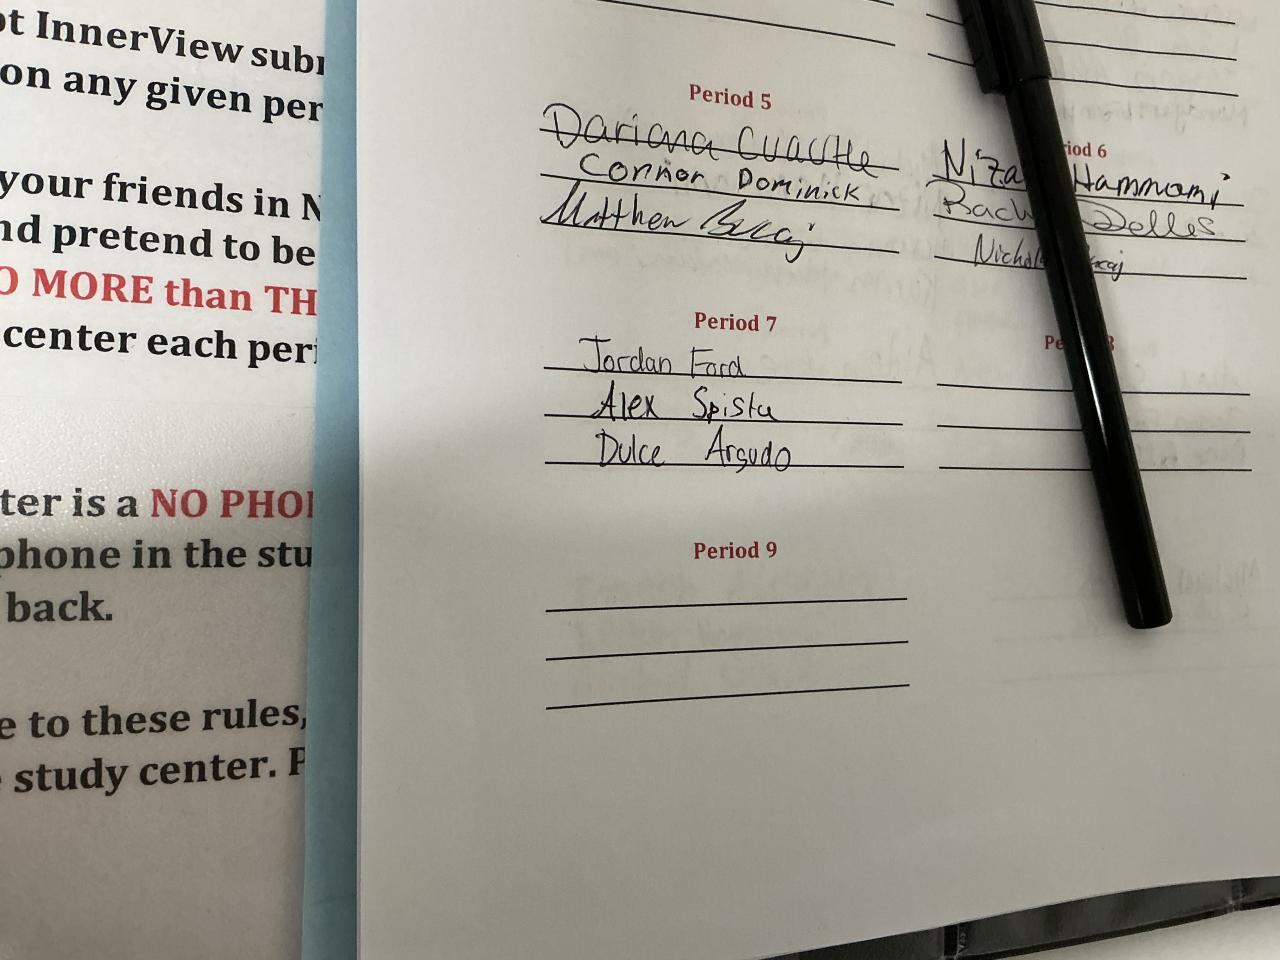 ot InnerView subm
on any given per
your friends in N
nd pretend to be
O MORE than TH
center each peri
ter is a NO PHO
phone in the stu
back.
e to these rules,
study center. P
Period 5
Dariana Cuautle
Connor Dominick
Matthew
iod 6
Niza Hammami
Dolles
Period 7
Jordan Ford
Alex
Dulce Argudo
Period 9